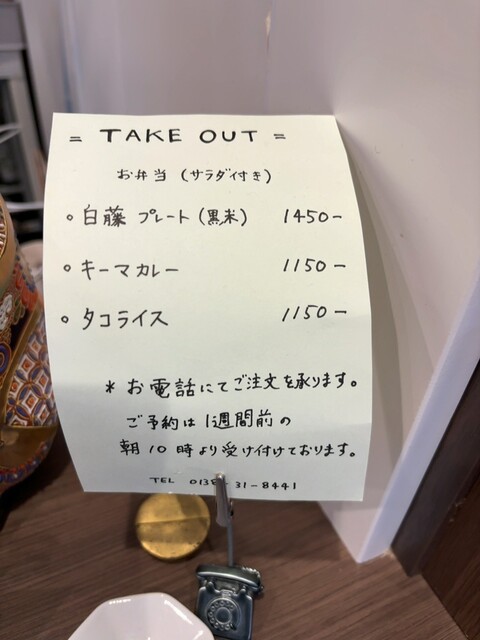 = TAKE OUT =
お弁当 (サラダ付き)
○ 白藤 プレート (黒米) 1450-
○ キーマカレー 1150-
○ タコライス 1150-
* お電話にてご注文を承ります。
ご予約は 1週間前の
朝 10時より受け付けております。
TEL 0138-31-8441